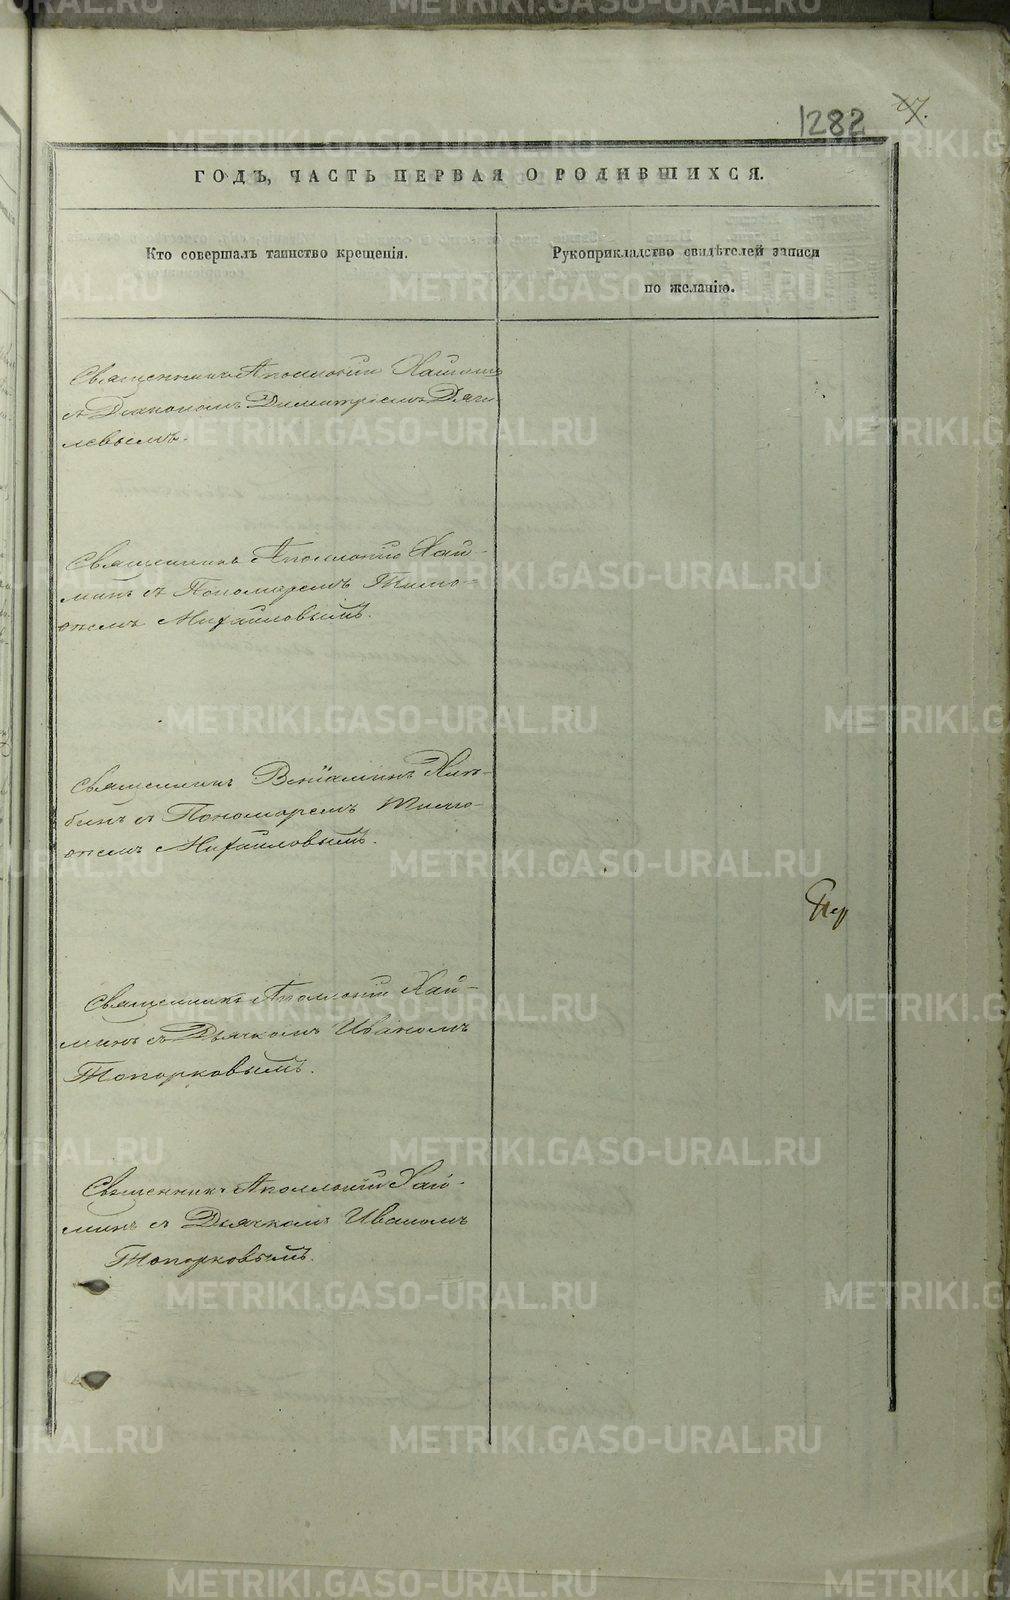 1282
47.
ГОДЪ, ЧАСТЬ ПЕРВАЯ О РОДИВШИХСЯ.
Кто совершалъ таинство крещенія.
Рукоприкладство свидѣтелей записи
по желанію.
Священникъ Аполлоній Хаймин
съ Діакономъ Димитріемъ Дяги
левымъ.
Священникъ Аполлоній Хай-
минъ съ Пономаремъ Тимо-
ѳеемъ Михайловымъ.
Священникъ Веніаминъ
бинъ съ Пономаремъ Тимо-
ѳеемъ Михайловымъ.
Священникъ Аполлоній Хай-
минъ съ Дьячкомъ Иваномъ
Топорковымъ.
Священникъ Аполлоній Хай-
минъ съ Дьячкомъ Иваномъ
Топорковымъ.
METRIKI.GASO-URAL.RU